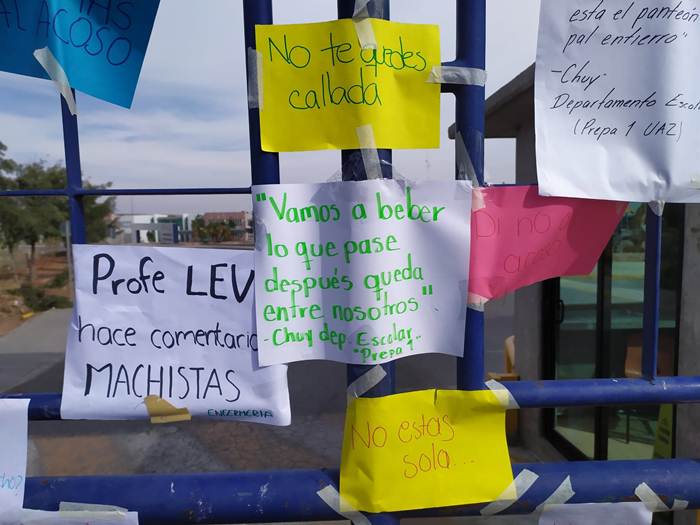 AL ACOSO
No te quedes
callada
esta el panteón
pal entierro"
-Chuy.
Departamento Escol
(Prepa 1 UAZ)
"Vamos a beber
lo que pase
después queda
entre nosotros"
-Chuy dep. Escolar
"Prepa 1"
Di no
acoso
Profe LEV
hace comentario
MACHISTAS
ENFERMERIA
No estas
sola...